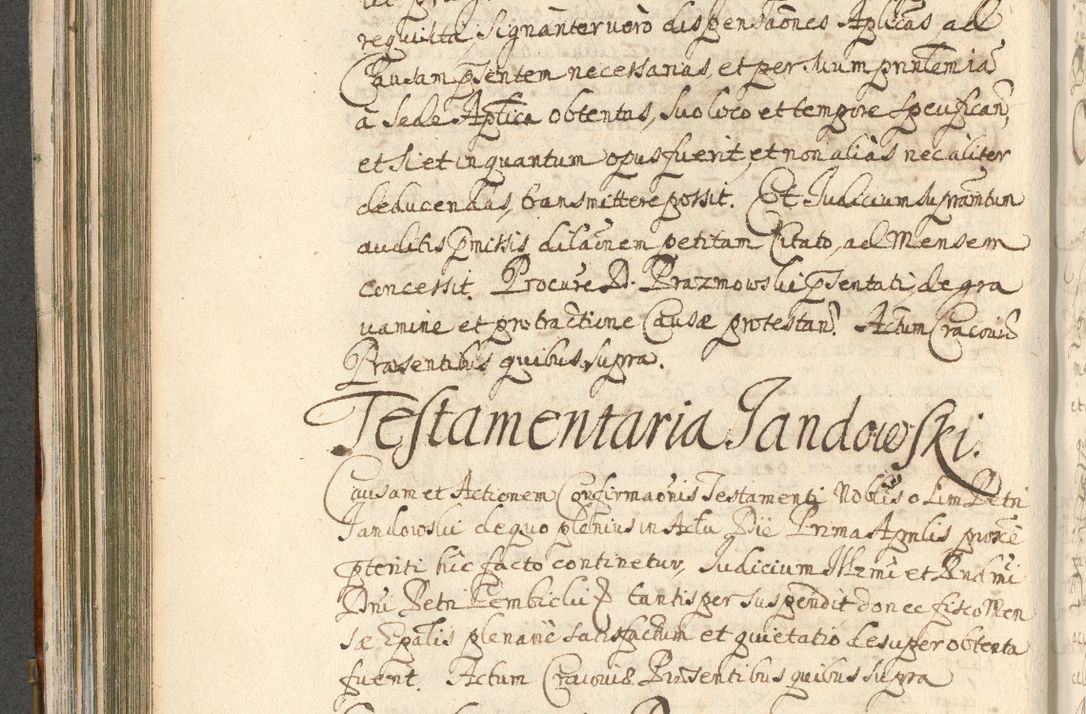 requisita, signanter vero dispensaones Aplicas, ad
Causam psentem necessarias, et per suum prinlem ia
a Sede Aplica obtentas, suo loco et tempore specifican,
et si et in quantum opus fuerit, et non alias nec aliter
deducendas, transmittere possit. Et Judicium supramtum
auditis pmissis dilaonem petitam Citato, ad Mensem
concessit. Procure D. Brazmowski psentati, de gra
uamine et protractione Causæ protestan. Actum Cracouiæ
Præsentibus quibus supra.
Testamentaria Jandowski.
Causam et Actionem Confirmaonis Testamenti Noblis olim Petri
Jandowski de quo plenius in Actu Die Prima Aprilis proxe
ptenti hic facto continetur, Judicium Illrmi et Rndmi
Dni Petri Gembicki tantisper suspendit donec fisco Men
sæ Epalis plenarie satisfactum et quietatio desuper obtenta
fuerit. Actum Cracouiæ Præsentibus quibus supra